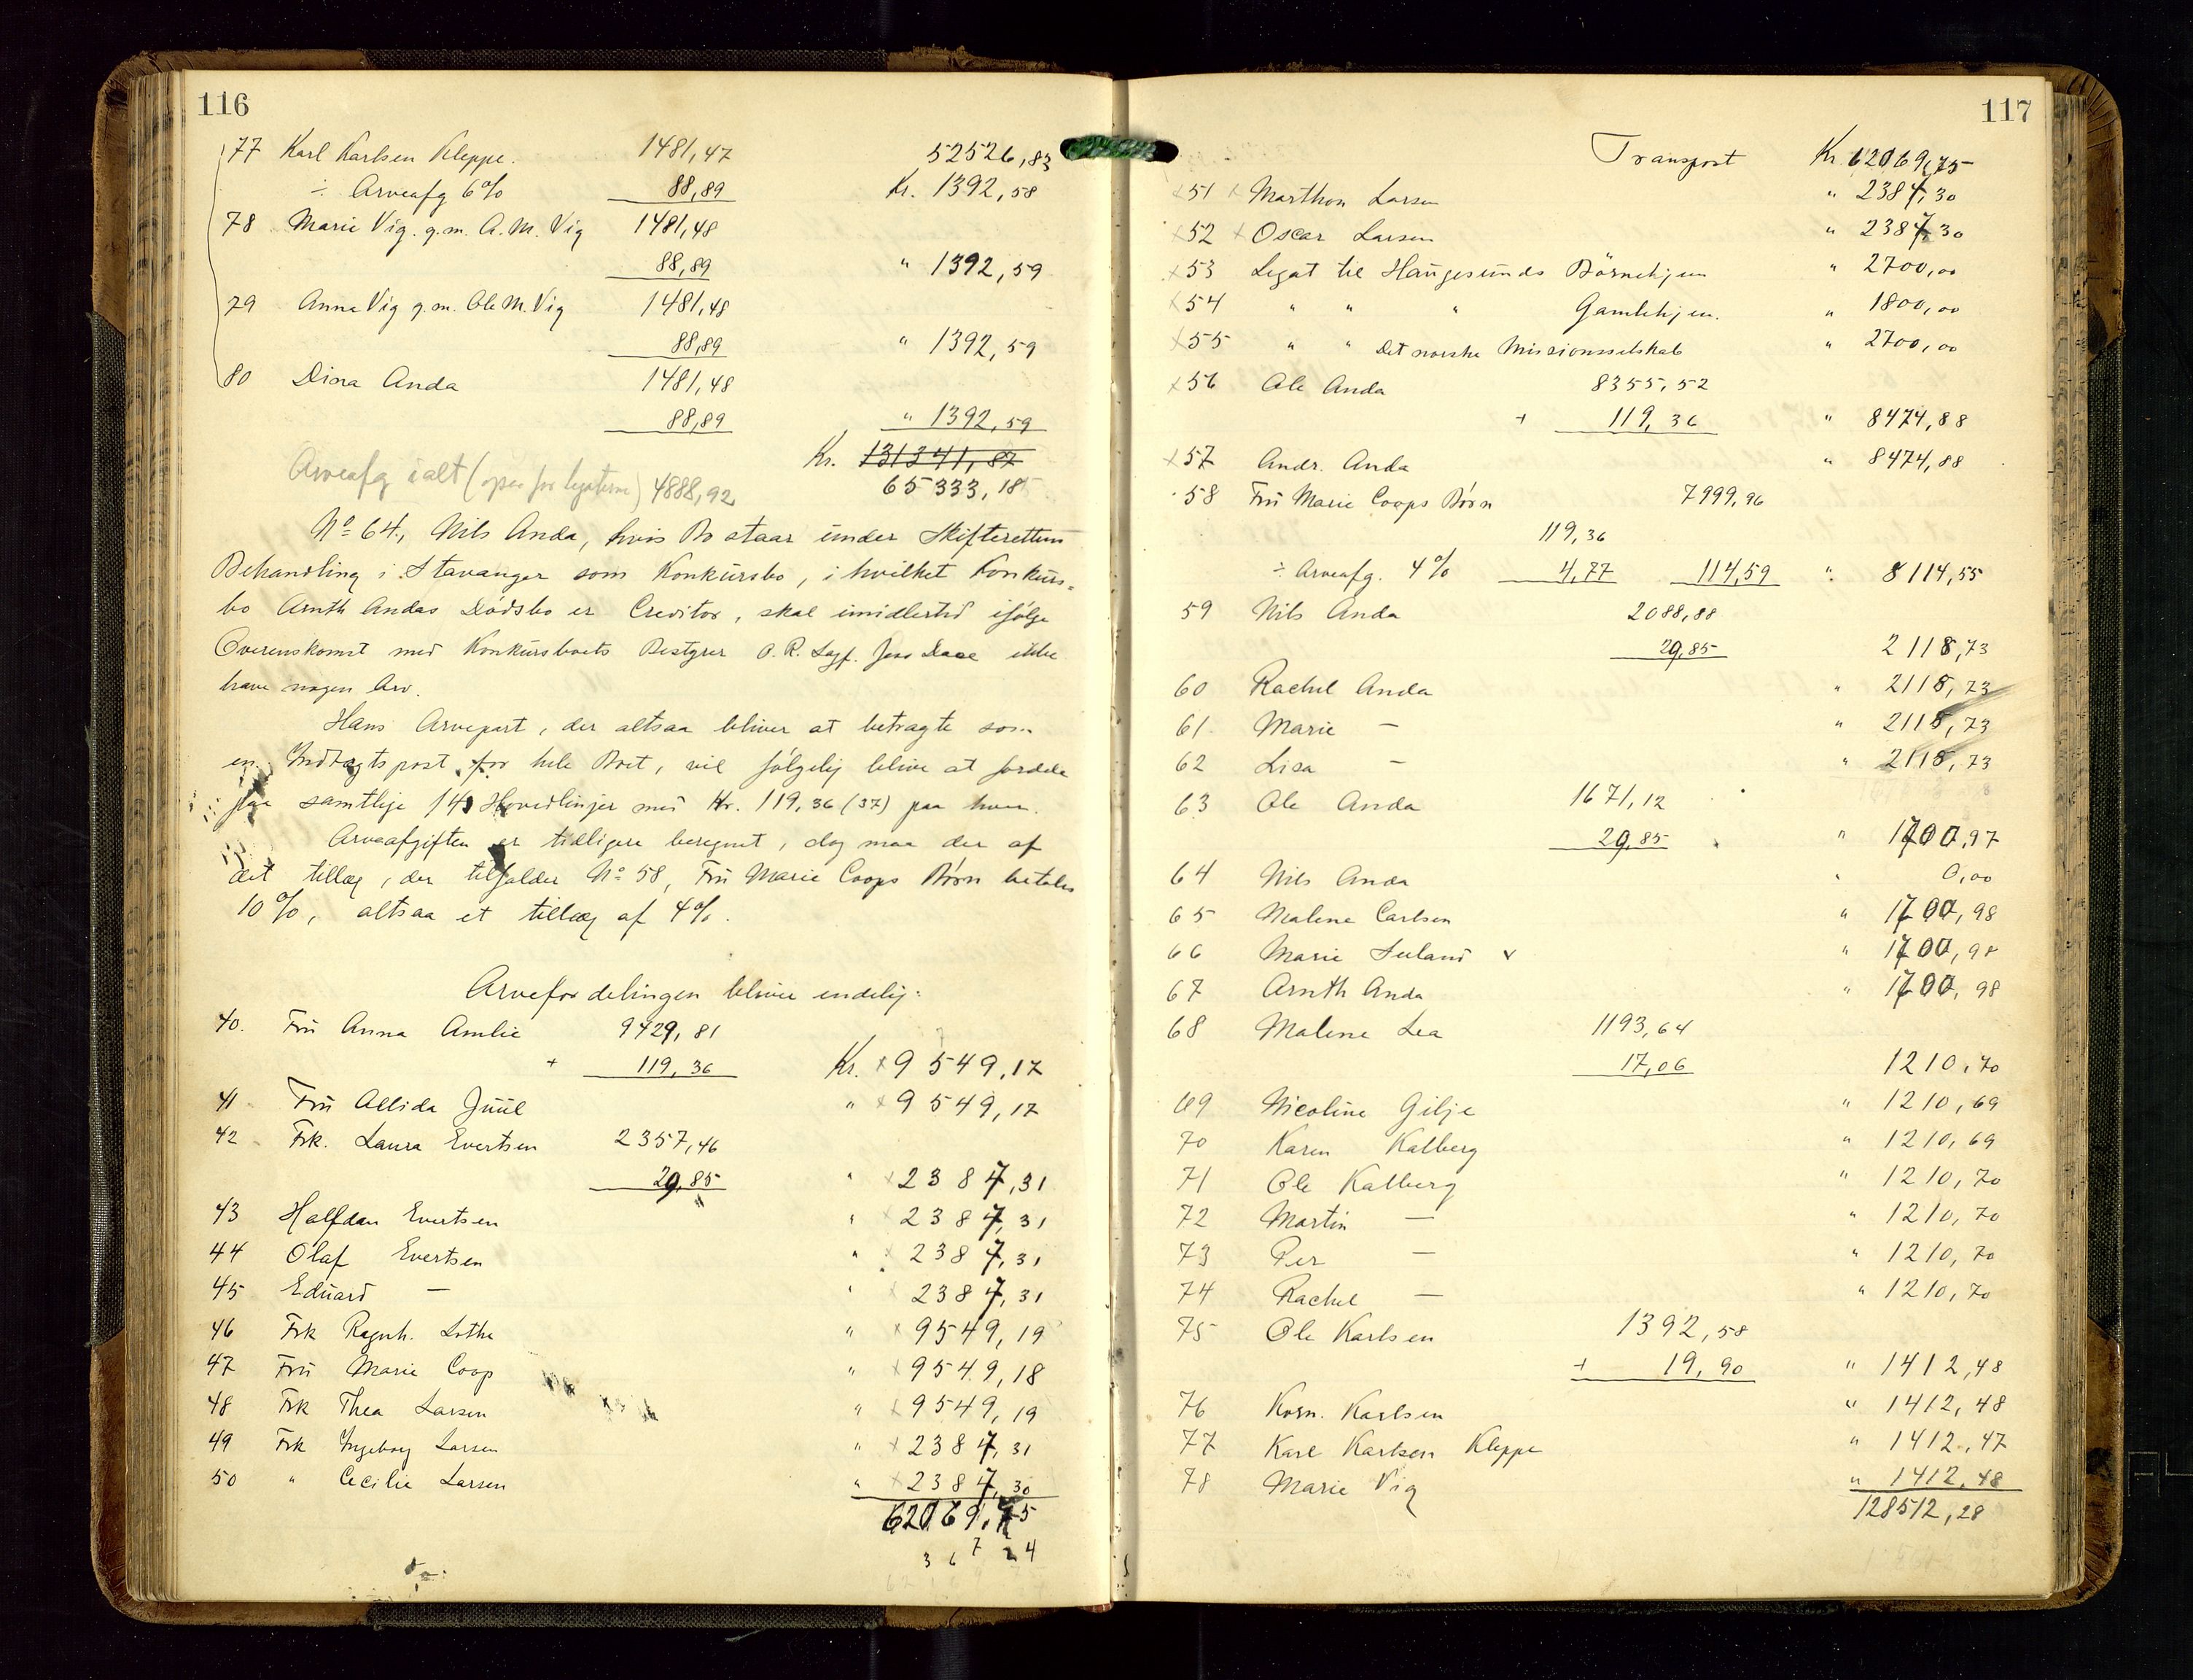 116
77 Karl Karlsen Kleppe. 1481,47 52526,83
÷ Arveafg 6% 88,89 Kr. 1392,58
78 Marie Vig. g.m. A.M. Vig 1481,48
88,89 " 1392,59
79 Anna Vig g.m. Ole M. Vig 1481,48
88,89 " 1392,59
80 Dina Anda 1481,48
88,89 " 1392,59
Kr. 131341,87
Arveafg ialt (ogsaa for legaterne) 4888,92 65333,18
No 64, Nils Anda, hvis Bo staar under Skifterettens
Behandling i Stavanger som Konkursbo, i hvilket Konkurs-
bo Arnth Andas Dødsbo er Creditor, skal imidlertid ifølge
Overenskomst med Konkursboets Bestyrer O.R. Sagf. ikke
have nogen Arv.
Hans Arvepart, der altsaa bliver at betragte som
en Indtægtspost for hele Boet, vil følgelig blive at fordele
paa samtlige 14 Hovedlinjer med Kr. 119,36 (37) paa hver.
Arveafgiften er tidligere beregnet, dog maa der af
det tillæg, der tilfalder No 58, Fru Marie Coops Børn betales
10%, altsaa et tillæg af 4%.
Arvefordelingen bliver endelig:
40. Fru Anna Amlie 9429,81
+ 119,36 Kr. × 9549,17
41 Fru Allida Juul " × 9549,17
42 Frk. Laura Evertsen 2357,46
29,85 " × 2387,31
43 Halfdan Evertsen " × 2387,31
44 Olaf Evertsen " 2387,31
45 Eduard — " 2387,31
46 Frk Ragnh. Lothe " × 9549,19
47 Fru Marie Coop " × 9549,18
48 Frk Thea Larsen " × 9549,19
49 Frk Ingeborg Larsen " × 2387,31
50 " Cecilie Larsen " × 2387,30
62069,75
3 6 7 24
117
Transport Kr 62069,75
×51 × Marthon Larsen " 2387,30
×52 × Oscar Larsen " 2387,30
×53 Legat til Haugesunds Børnehjem " 2700,00
×54 " " " Gamlehjem. " 1800,00
×55 " " Det norske Missionsselskab " 2700,00
×56 Ole Anda 8355,52
+ 119,36 " 8474,88
×57 Andr. Anda " 8474,88
58 Fru Marie Coops Børn 7999,96
119,36
÷ Arveafg. 4% 4,77 114,59 " 8114,55
59 Nils Anda 2088,88
29,85 2118,73
60 Rachel Anda " 2118,73
61 Marie — " 2118,73
62 Lisa — " 2118,73
63 Ole Anda 1671,12
29,85 " 1700,97
64 Nils Anda " 0,00
65 Malene Carlsen " 1700,98
66 Marie Seland v " 1700,98
67 Arnth Anda " 1700,98
68 Malene Lea 1193,64
17,06 1210,70
69 Nicoline Gilje " 1210,69
70 Karen Kalberg " 1210,69
71 Ole Kalberg " 1210,70
72 Martin — " 1210,70
73 Per — " 1210,70
74 Rachel — " 1210,70
75 Ole Karlsen 1392,58
+ 19,90 " 1412,48
76 Korn. Karlsen " 1412,48
77 Karl Karlsen Kleppe " 1412,47
78 Marie Vig " 1412,48
128512,28